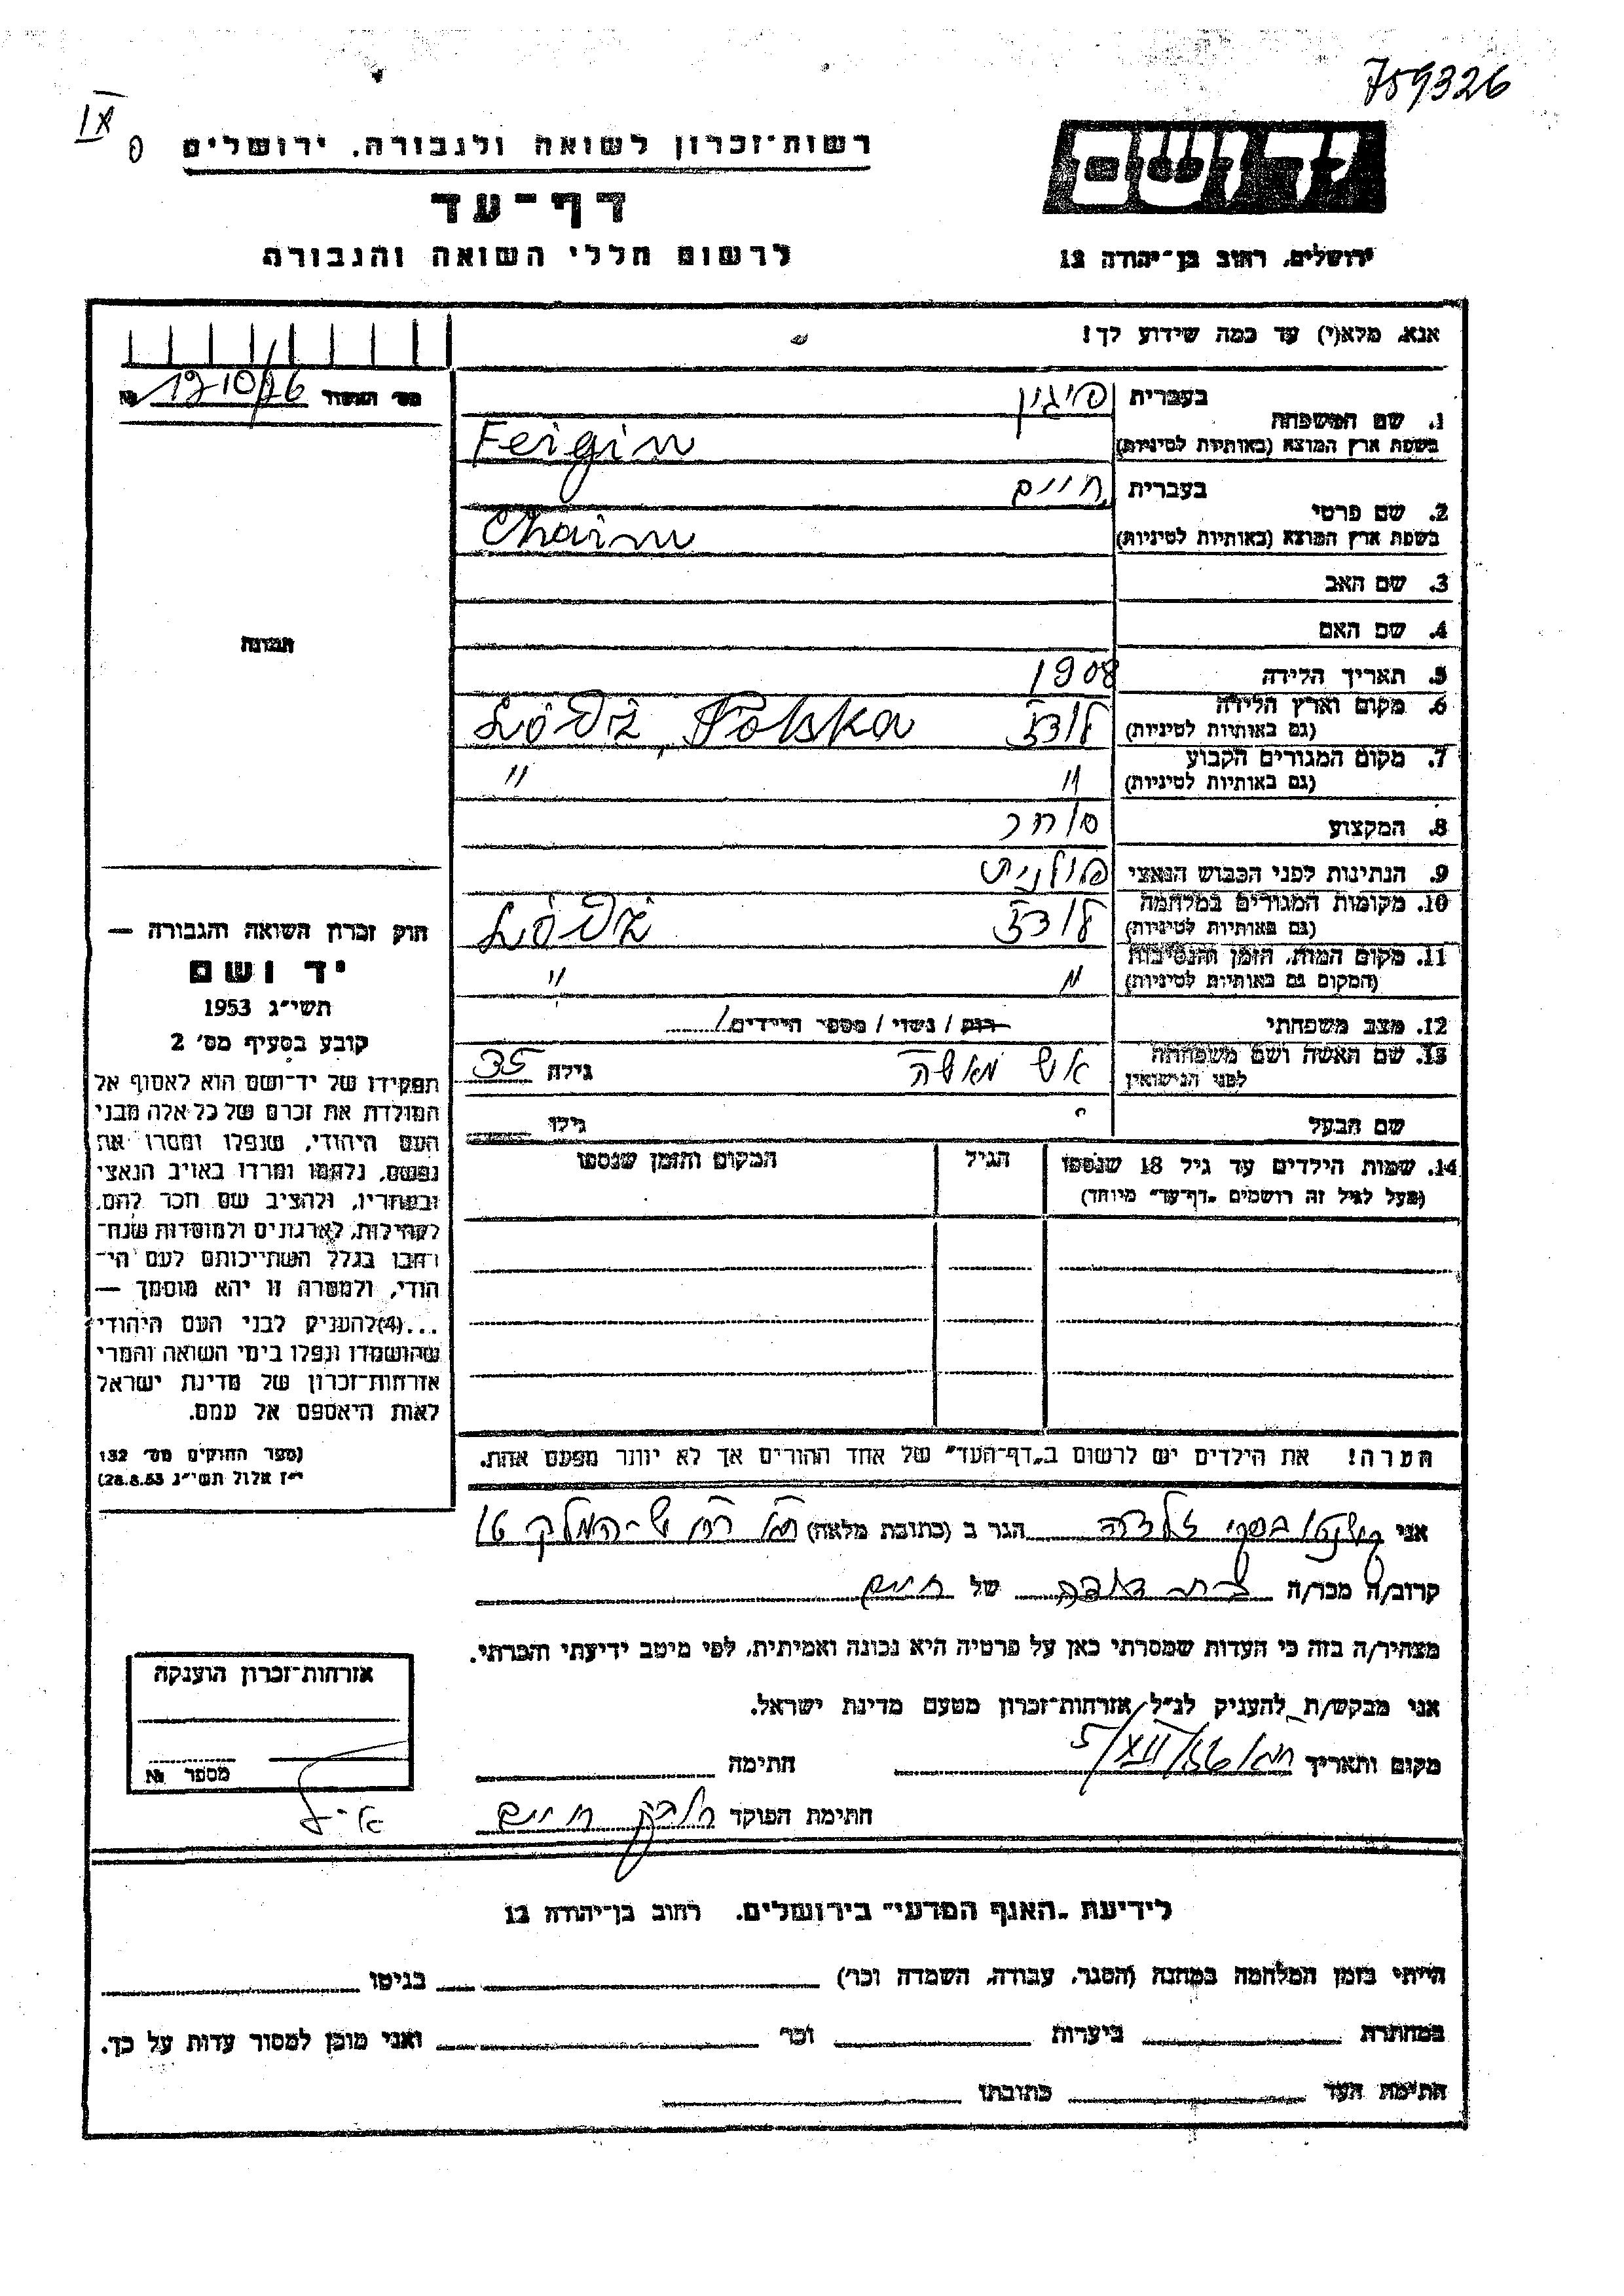 759326
IX
רשות־זכרון לשואה ולגבורה, ירושלים
דף־עד
לרשום חללי השואה והגבורה
ירושלים, רחוב בן־יהודה 12
אנא, מלא(י) עד כמה שידוע לך!
1. שם המשפחה
בעברית פייגין
בשפת ארץ המוצא (באותיות לטיניות) Feigin
2. שם פרטי
בעברית חיים
בשפת ארץ המוצא (באותיות לטיניות) Chaim
3. שם האב
4. שם האם
5. תאריך הלידה 1908
6. מקום וארץ הלידה (גם באותיות לטיניות) לודז Łódź, Polska
7. מקום המגורים הקבוע (גם באותיות לטיניות) " "
8. המקצוע סוחר
9. הנתינות לפני הכבוש הנאצי פולנית
10. מקומות המגורים במלחמה (גם באותיות לטיניות) לודז Łódź
11. מקום המות, הזמן והנסיבות (המקום גם באותיות לטיניות) " "
12. מצב משפחתי רווק / נשוי / מספר הילדים /
13. שם האשה ושם משפחתה לפני הנישואין אש מאשה גילה 35
שם הבעל גילו
14. שמות הילדים עד גיל 18 שנספו
(מעל לגיל זה רושמים „דף־עד" מיוחד)
הגיל
המקום והזמן שנספו
הערה! את הילדים יש לרשום ב„דף־העד" של אחד ההורים אך לא יותר מפעם אחת.
מס' האשור №
תמונה
חוק זכרון השואה והגבורה —
יד ושם
תשי"ג 1953
קובע בסעיף מס' 2
תפקידו של יד־ושם הוא לאסוף אל
המולדת את זכרם של כל אלה מבני
העם היהודי, שנפלו ומסרו את
נפשם, נלחמו ומרדו באויב הנאצי
ובעוזריו, ולהציב שם וזכר להם,
לקהילות, לארגונים ולמוסדות שנח־
רבו בגלל השתייכותם לעם הי־
הודי, ולמטרה זו יהא מוסמך —
...(4) להעניק לבני העם היהודי
שהושמדו ונפלו בימי השואה והמרי
אזרחות־זכרון של מדינת ישראל
לאות היאספם אל עמם.
(ספר החוקים מס' 132
י"ז אלול תשי"ג 28.8.53)
אני הגר ב (כתובת מלאה)
קרוב/ה מכר/ה בת דודה של חיים
מצהיר/ה בזה כי העדות שמסרתי כאן על פרטיה היא נכונה ואמיתית, לפי מיטב ידיעתי והכרתי.
אני מבקש/ת להעניק לנ"ל אזרחות־זכרון מטעם מדינת ישראל.
מקום ותאריך חתימה
חתימת הפוקד חיים
אזרחות־זכרון הוענקה
מספר №
לידיעת „האגף המדעי" בירושלים, רחוב בן־יהודה 12
הייתי בזמן המלחמה במחנה (הסגר, עבודה, השמדה וכו') בגיטו
במחתרת ביערות וכו' ואני מוכן למסור עדות על כך.
חתימת העד כתובתו